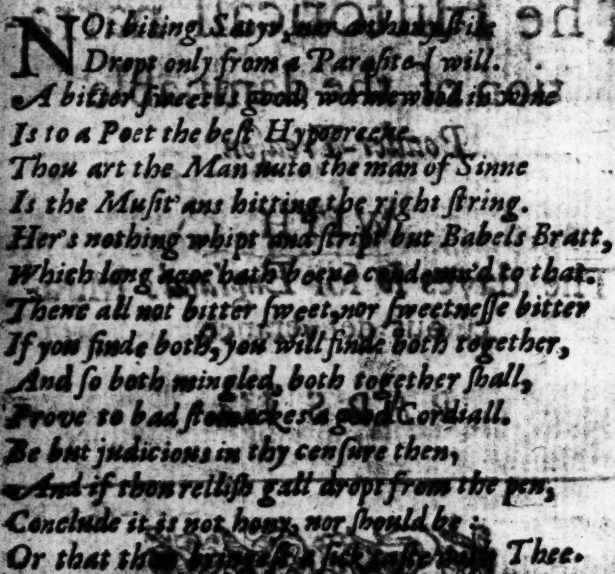 NOt biting Satyr, nor
Dropt only from a Paraſite I will.
A bitter ſweet is good, wormewood in wine
Is to a Poet the beſt Hypocreene
Thou art the Man nuto the man of Sinne
Is the Muſit'ans hitting the right ſtring.
Her's nothing whipt and ſtript but Babels Bratt,
Which long agoe hath beene condemn'd to that.
There all not bitter ſweet, nor ſweetneſſe bitter
If you finde both, you will finde both together,
And ſo both mingled, both together ſhall,
Prove to bad ſtomackes a good Cordiall.
Be but judicious in thy cenſure then,
And if thou relliſh gall dropt from the pen,
Conclude it is not hony, nor ſhould be
Or that thou a Thee.